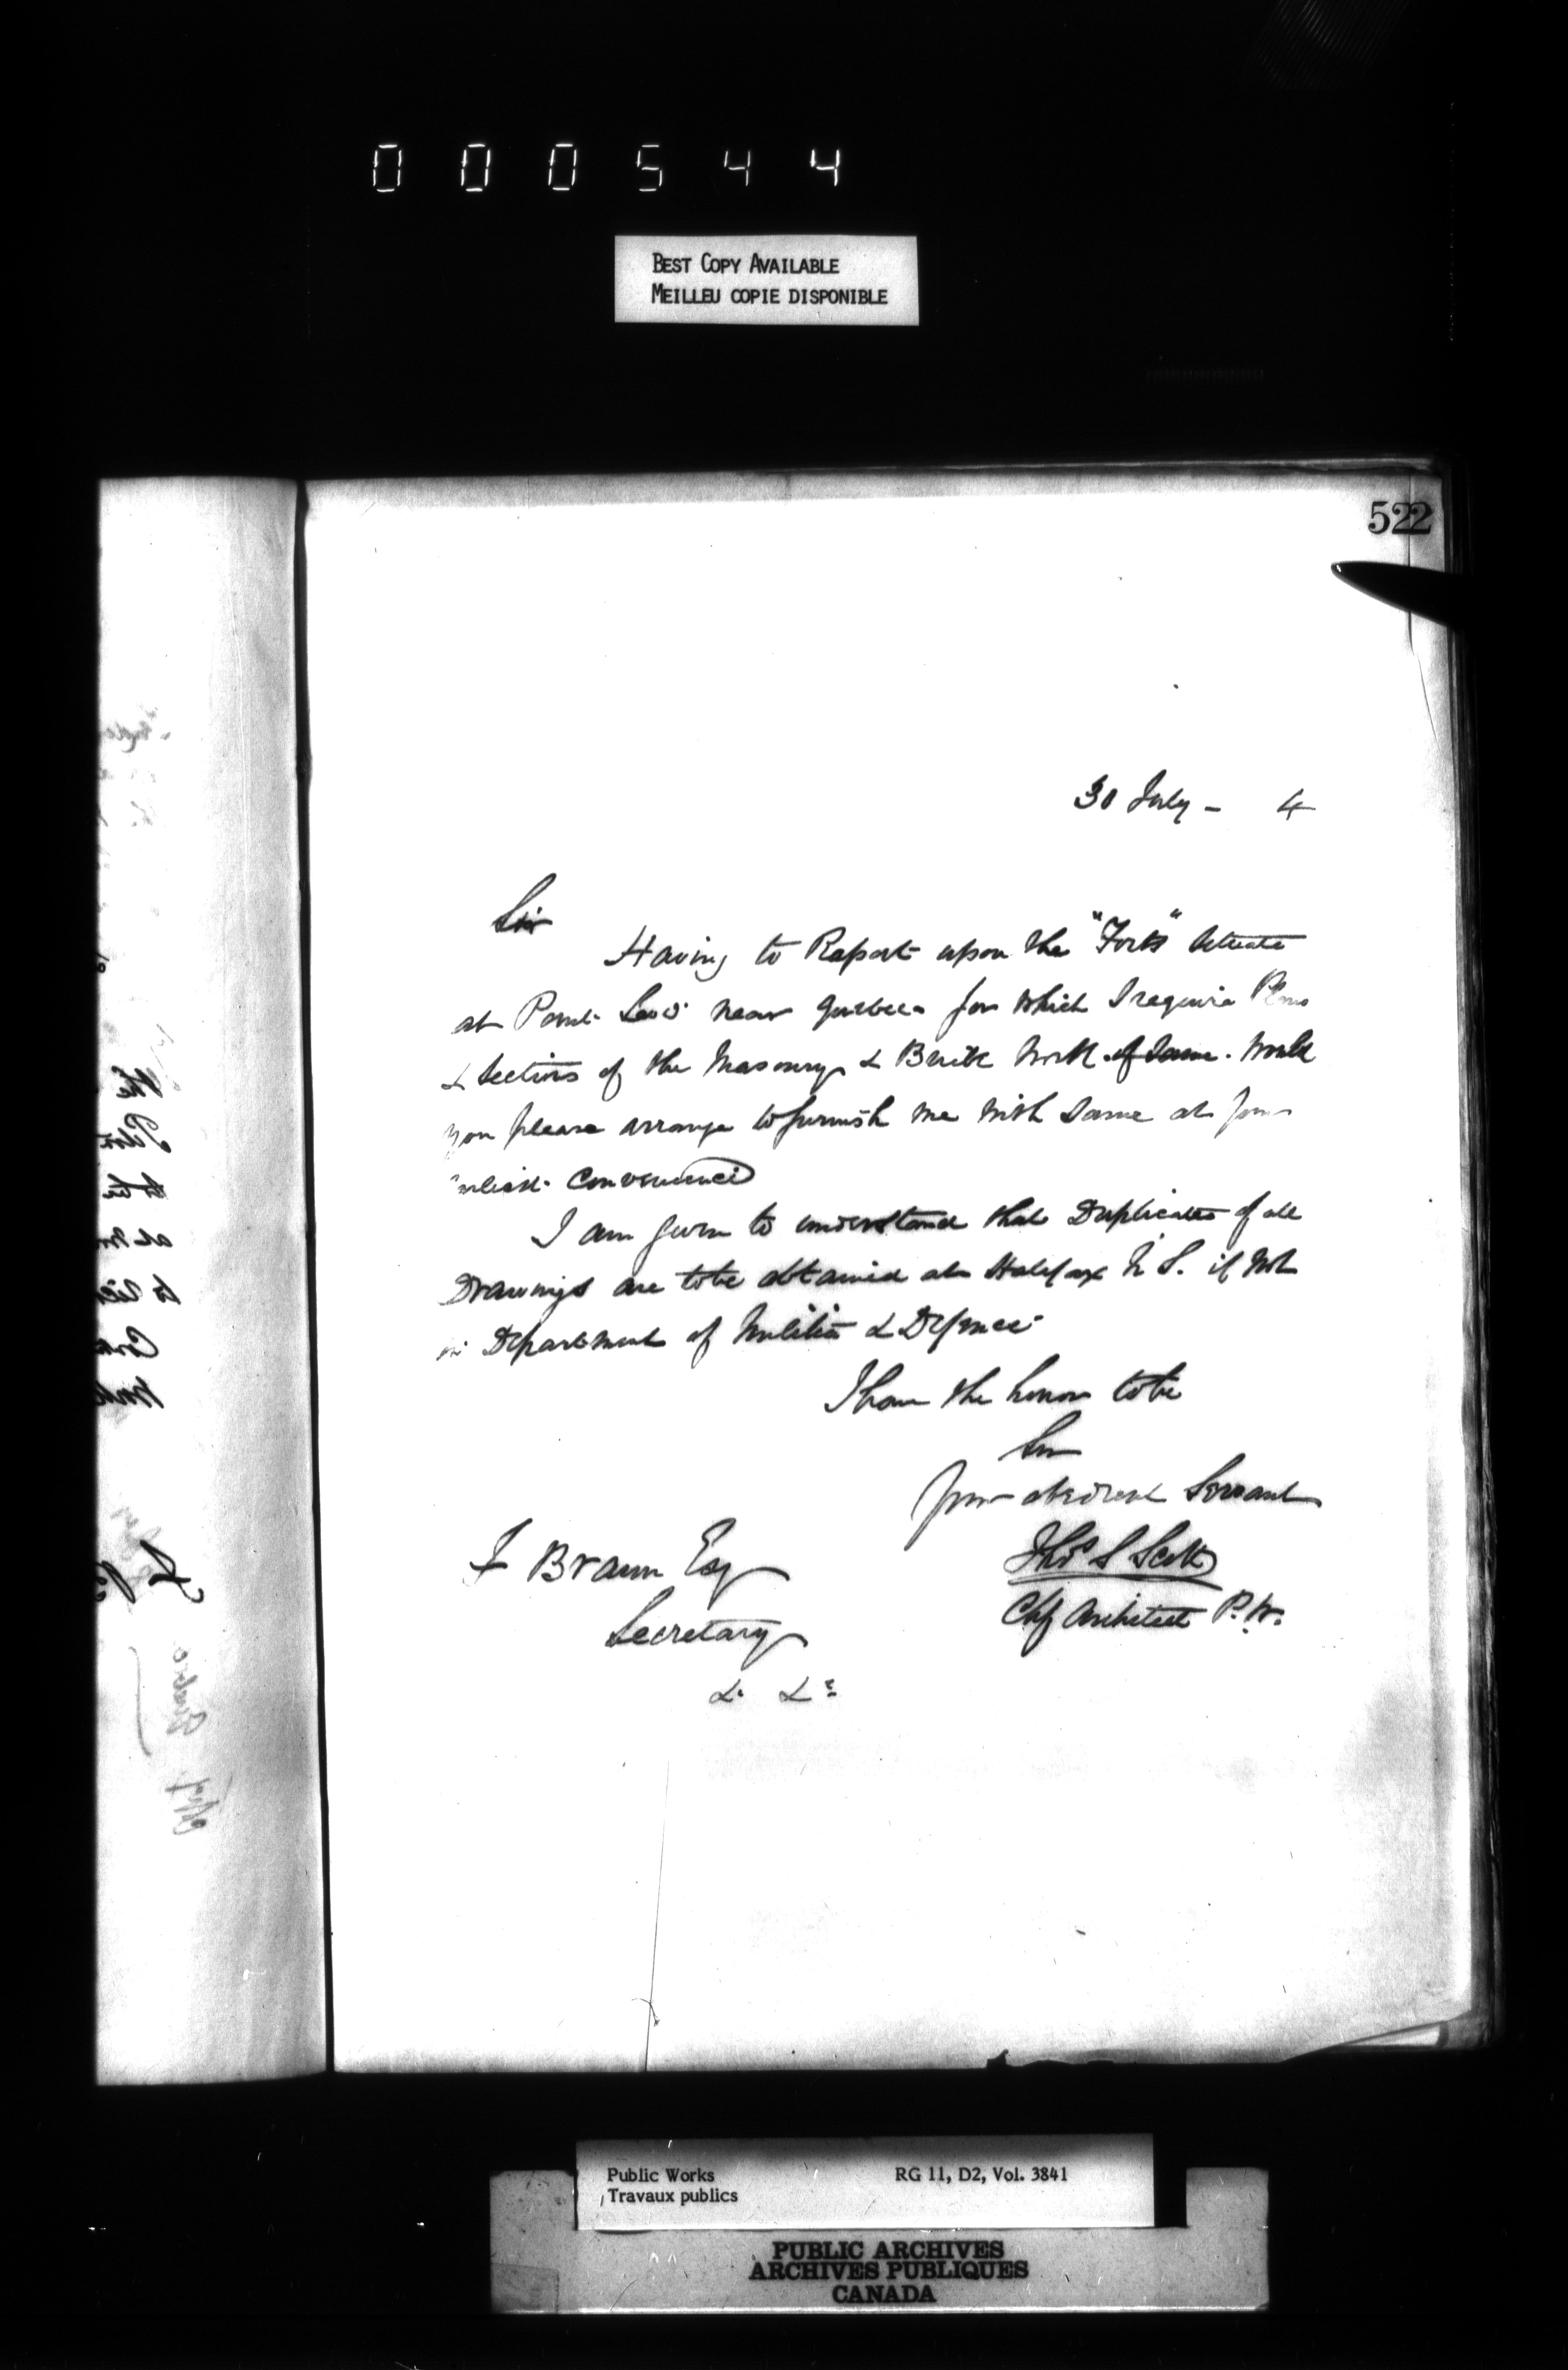 000544
BEST COPY AVAILABLE
MEILLEU COPIE DISPONIBLE
522
30 July - 4
Sir
Having to Report upon the "Forts" situate
at Point Levis near Quebec for which I require Plans
& Sections of the Masonry & Brick Work of Same. Would
you please arrange to furnish me with Same at your
earliest convenience
I am given to understand that Duplicates of all
Drawings are to be obtained at Halifax N.S. if Not
in Department of Militia & Defence
I have the honor to be
Sir
Your obedient Servant
Thos S Scott
Chf Architect P.W.
F Braun Esq
Secretary
&c &c
Public Works
Travaux publics
RG 11, D2, Vol. 3841
PUBLIC ARCHIVES
ARCHIVES PUBLIQUES
CANADA